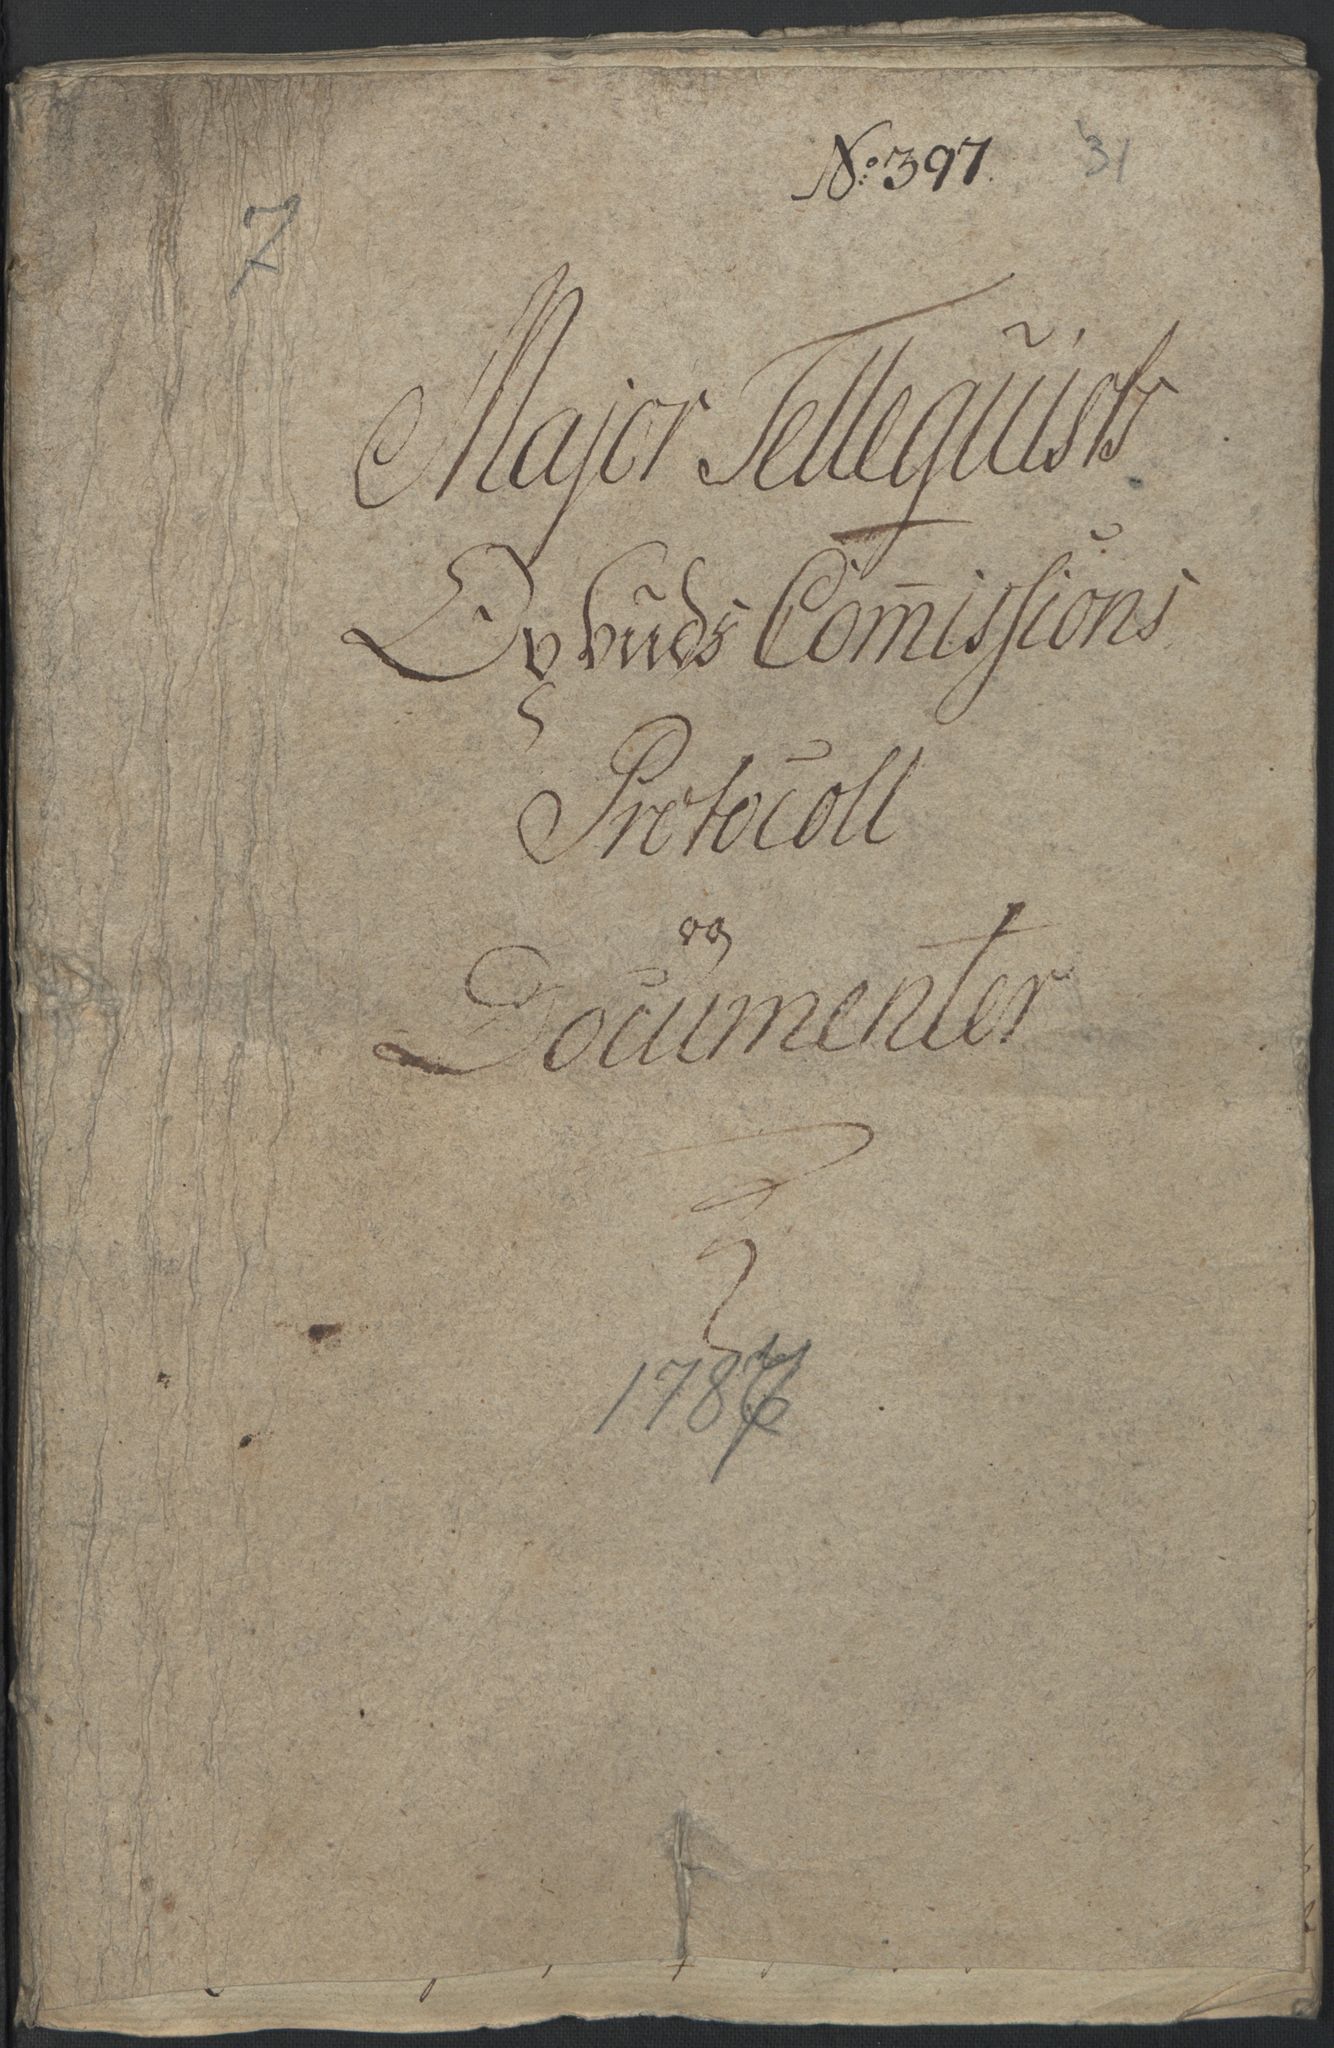 No: 397. 31
7
Major Tellequists
Opbuds Com̄issions
Protocoll
og
Documenter
1787